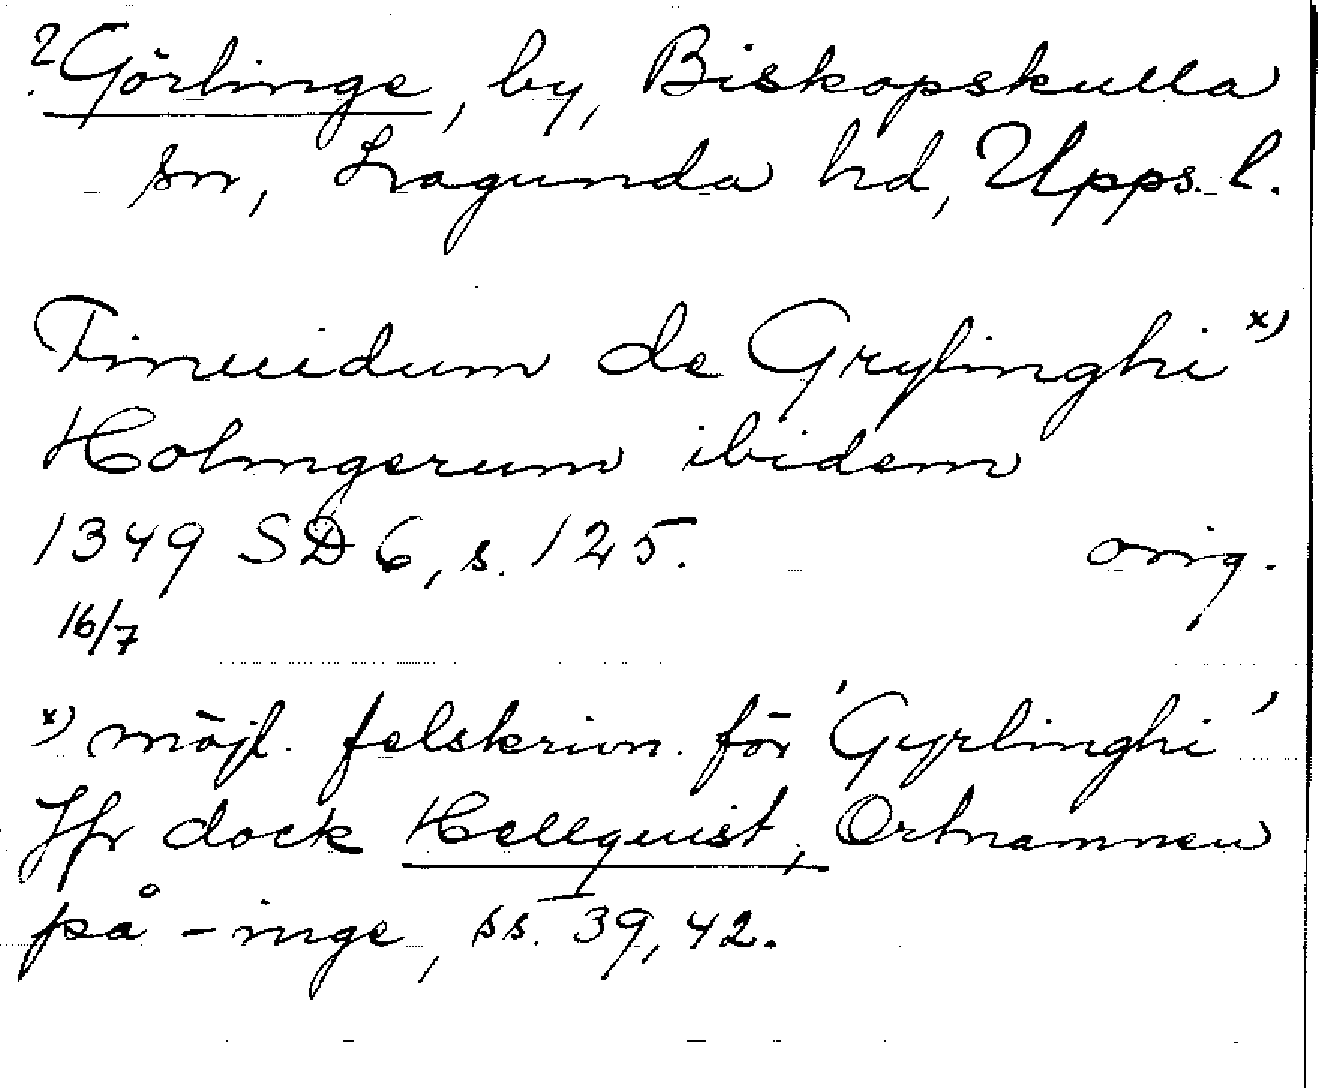 ? Görlinge, by, Biskopskulla
sn, Lagunda hd, Upps. l.
Finuidum de Grylinghi x)
Holmgerum ibidem
1349 SD 6, s. 125. orig.
16/7
x) möjl. felskrivn. för 'Gyrlinghi'
Jfr dock Hellquist, Ortnamnen
på -inge, ss. 39, 42.